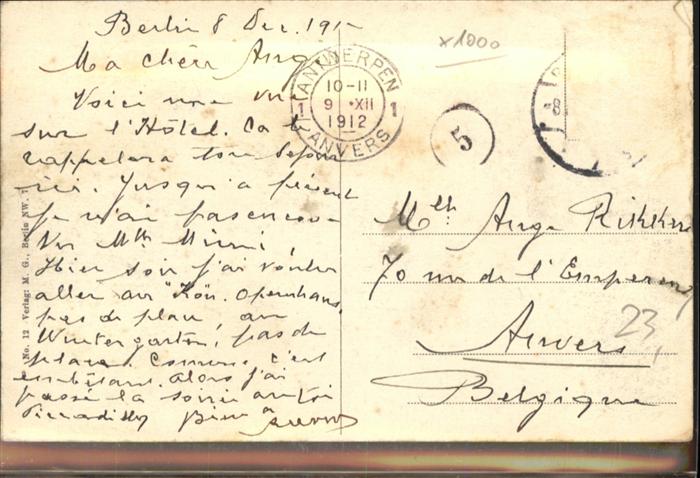 Berlin 8 Dec. 191
Ma chère Ang
Voici une vue
sur l'Hôtel. Ca te
rappelera ton séjour
ici. Jusqu'a présent
je n'ai pas encore
vu Mlle Mimi,
Hier soir j'ai voulu
aller au "Kön. Opernhaus,
pas de place, au
Wintergarten, pas de
place. Comme c'est
embêtant. Alors j'ai
passé la soirée au
Piccadilly Bien à
ANTWERPEN
10-11
1 9 XII 1
1912
ANVERS
x1000
5
8
Mlle Ange Rikkers
70 rue de l'Empereur
Anvers
23,
Belgique
No. 12 Verlag: M. G., Berlin NW.